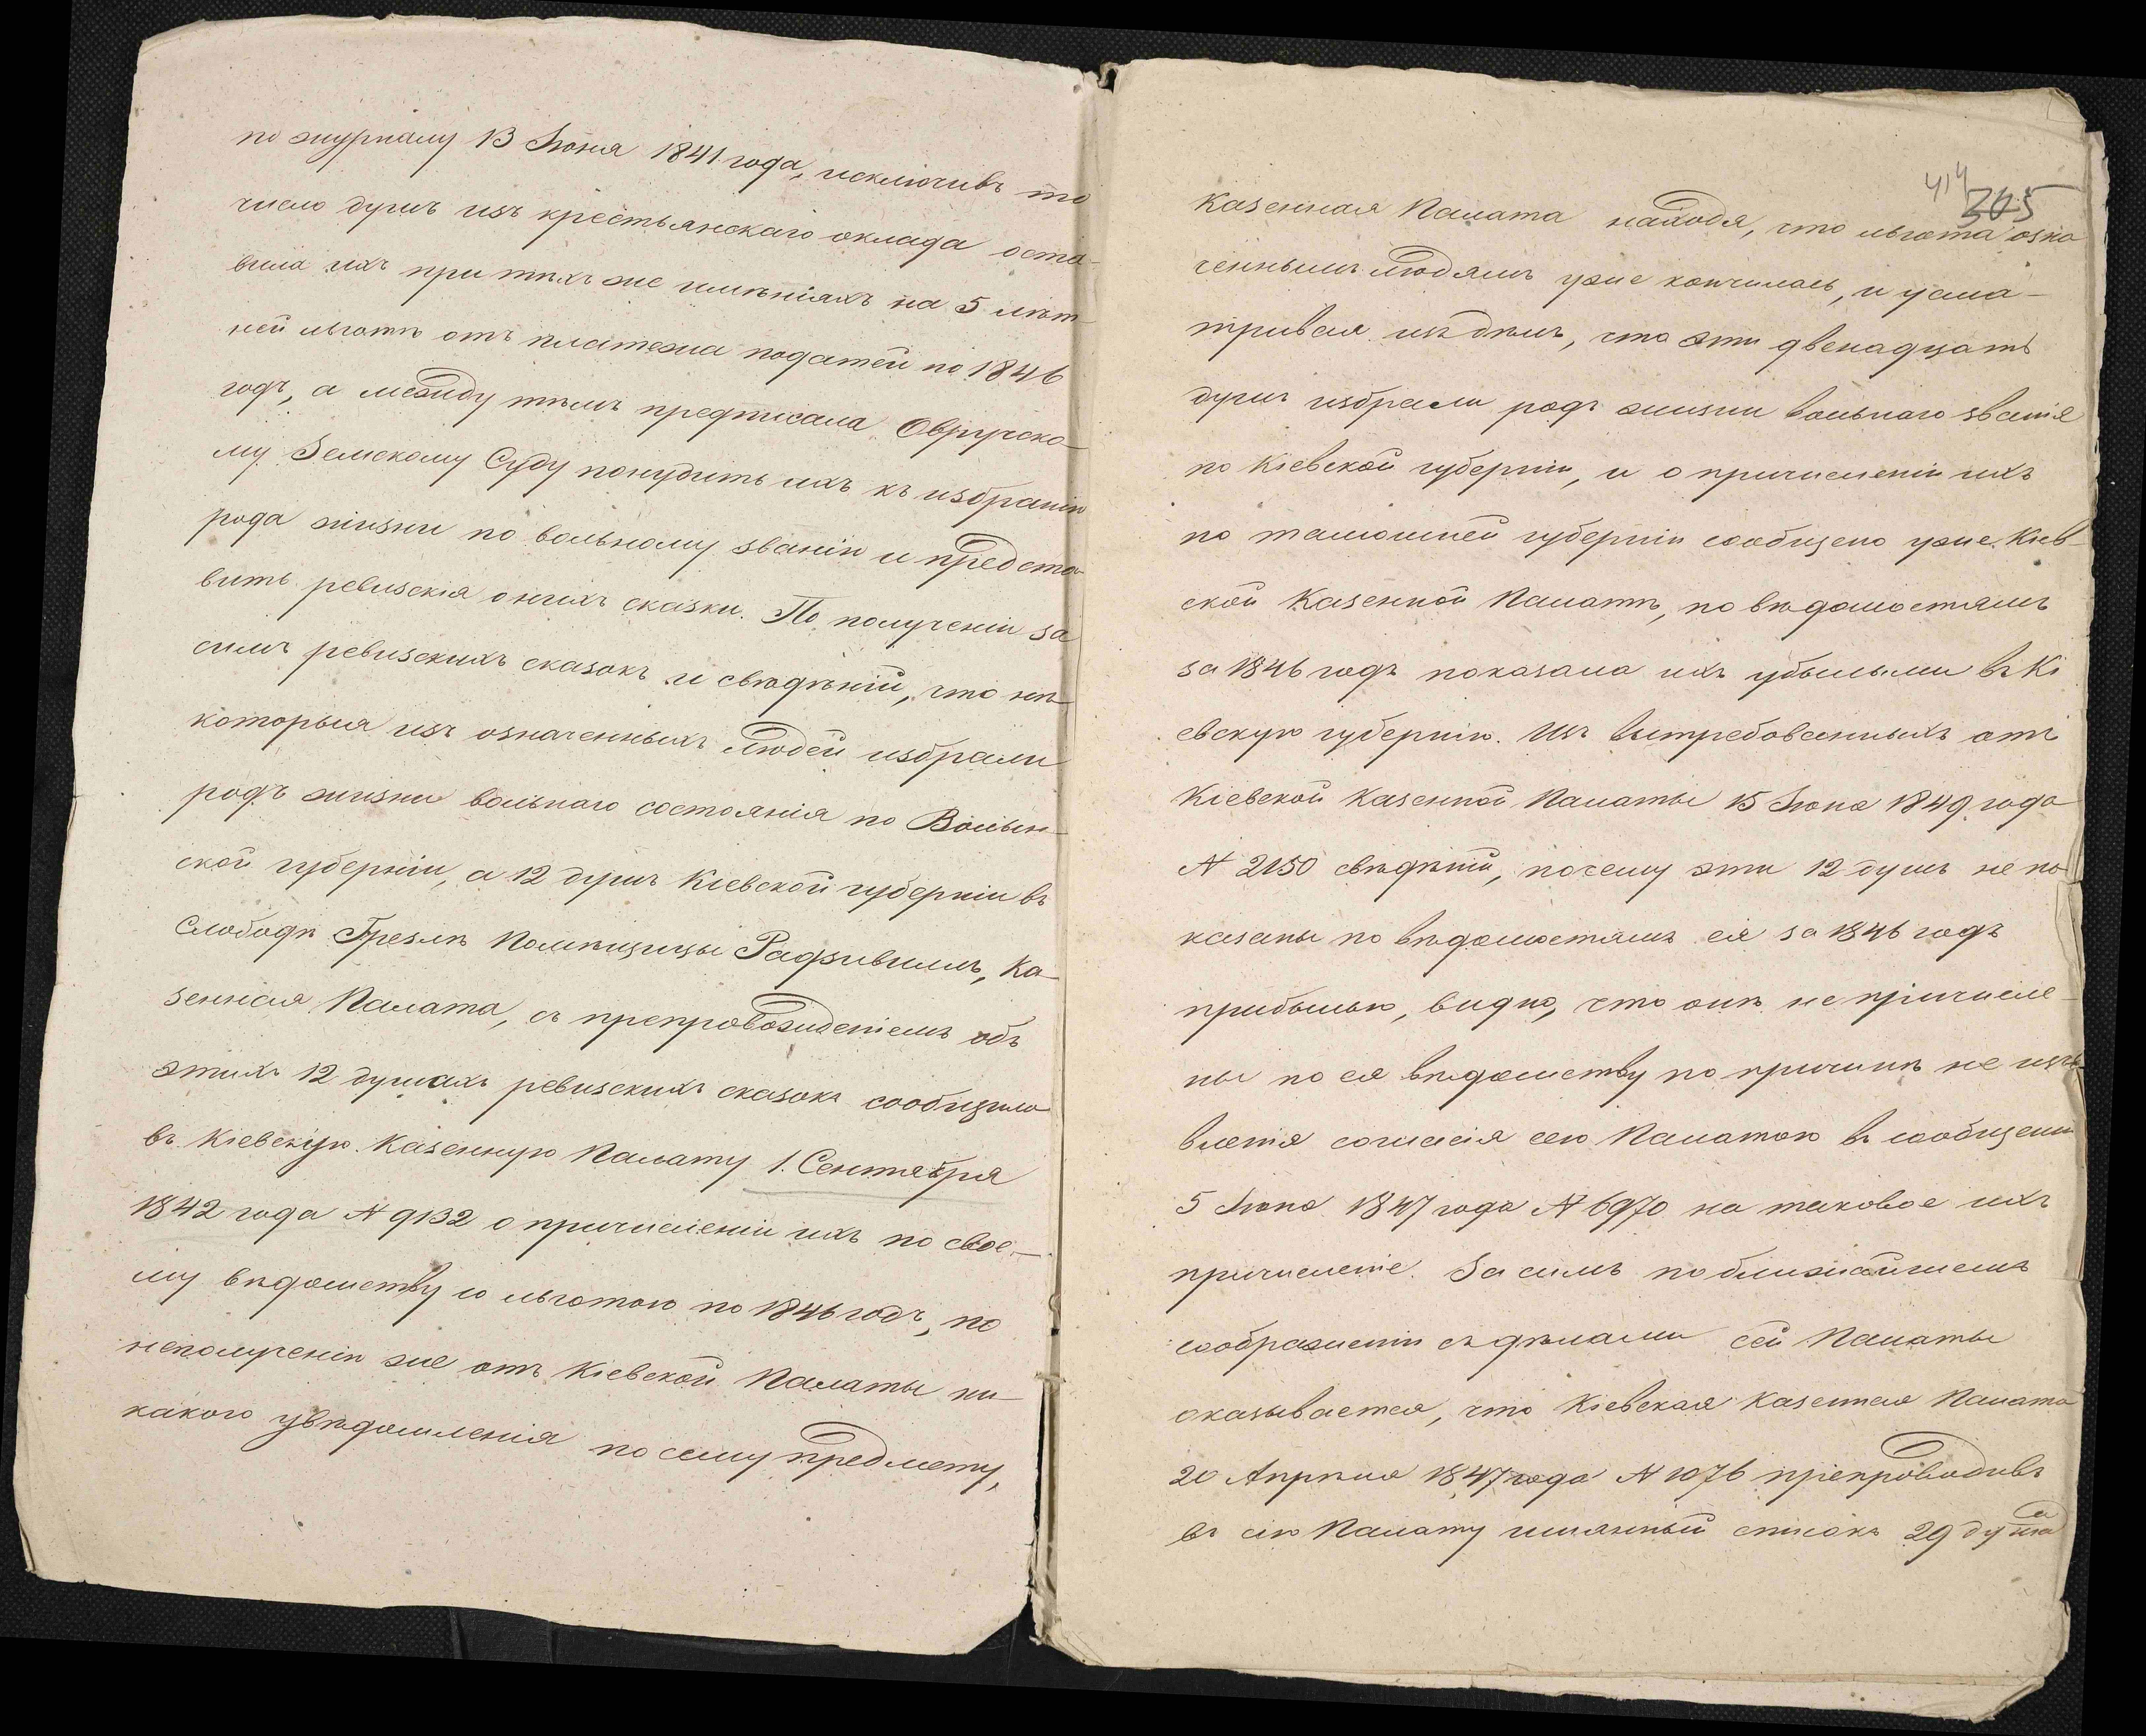 по журналу 13 Июня 1841 года, исключивъ то
число душъ изъ крестьянскаго оклада оста-
вила ихъ при тѣхъ же имѣніяхъ на 5 лѣт-
ней льготѣ отъ платежа податей по 1846
годъ, а между тѣмъ предписала Овручско-
му Земскому Суду понудить ихъ къ избранію
рода жизни по вольному званію и предста-
вить ревизскія о нихъ сказки. По полученіи за
симъ ревизскихъ сказокъ и свѣдѣній, что нѣ-
которыя изъ означенныхъ людей избрали
родъ жизни вольнаго состоянія по Волын-
ской губерніи, а 12 душъ Кіевской губерніи въ
Слободѣ Грезлѣ Помѣщицы Радзивилъ, Ка-
зенная Палата, съ препровожденіемъ объ
этихъ 12 душахъ ревизскихъ сказокъ сообщило
въ Кіевскую Казенную Палату 1. Сентября
1842 года N 9132 о причисленіи ихъ по свое-
му вѣдомству со льготою по 1846 годъ, по
неполученіи же отъ Кіевской Палаты ни-
какого увѣдомленія по сему предмету,
414
305
Казенная Палата находя, что льгота озна
ченнымъ людямъ уже кончилась, и усма-
тривая изъ дѣлъ, что эти двенадцать
душъ избрали родъ жизни вольнаго званія
по Кіевской губерніи, и о причисленіи ихъ
по тамошней губерніи сообщено уже Кіев-
ской Казенной Палатѣ, по вѣдомостямъ
за 1846 годъ показала ихъ убылыми въ Кі
евскую губернію. Изъ вытребованныхъ отъ
Кіевской Казенной Палаты 15 Июня 1849 года
N 2150 свѣдѣній, почему эти 12 душъ не по
казаны по вѣдомостямъ ея за 1846 годъ
прибылью, видно, что онѣ не причисле-
ны по ея вѣдомству по причинѣ не изъя
вленія согласія сею Палатою въ сообщеніи
5 Июня 1847 года N 6970 на таковое ихъ
причисленіе. За симъ по ближайшемъ
соображеніи съ дѣлами сей Палаты
оказывается, что Кіевская Казенная Палата
20 Апрѣля 1847 года N 1076 препроводивъ
въ сію Палату имянный списокъ 29 душа